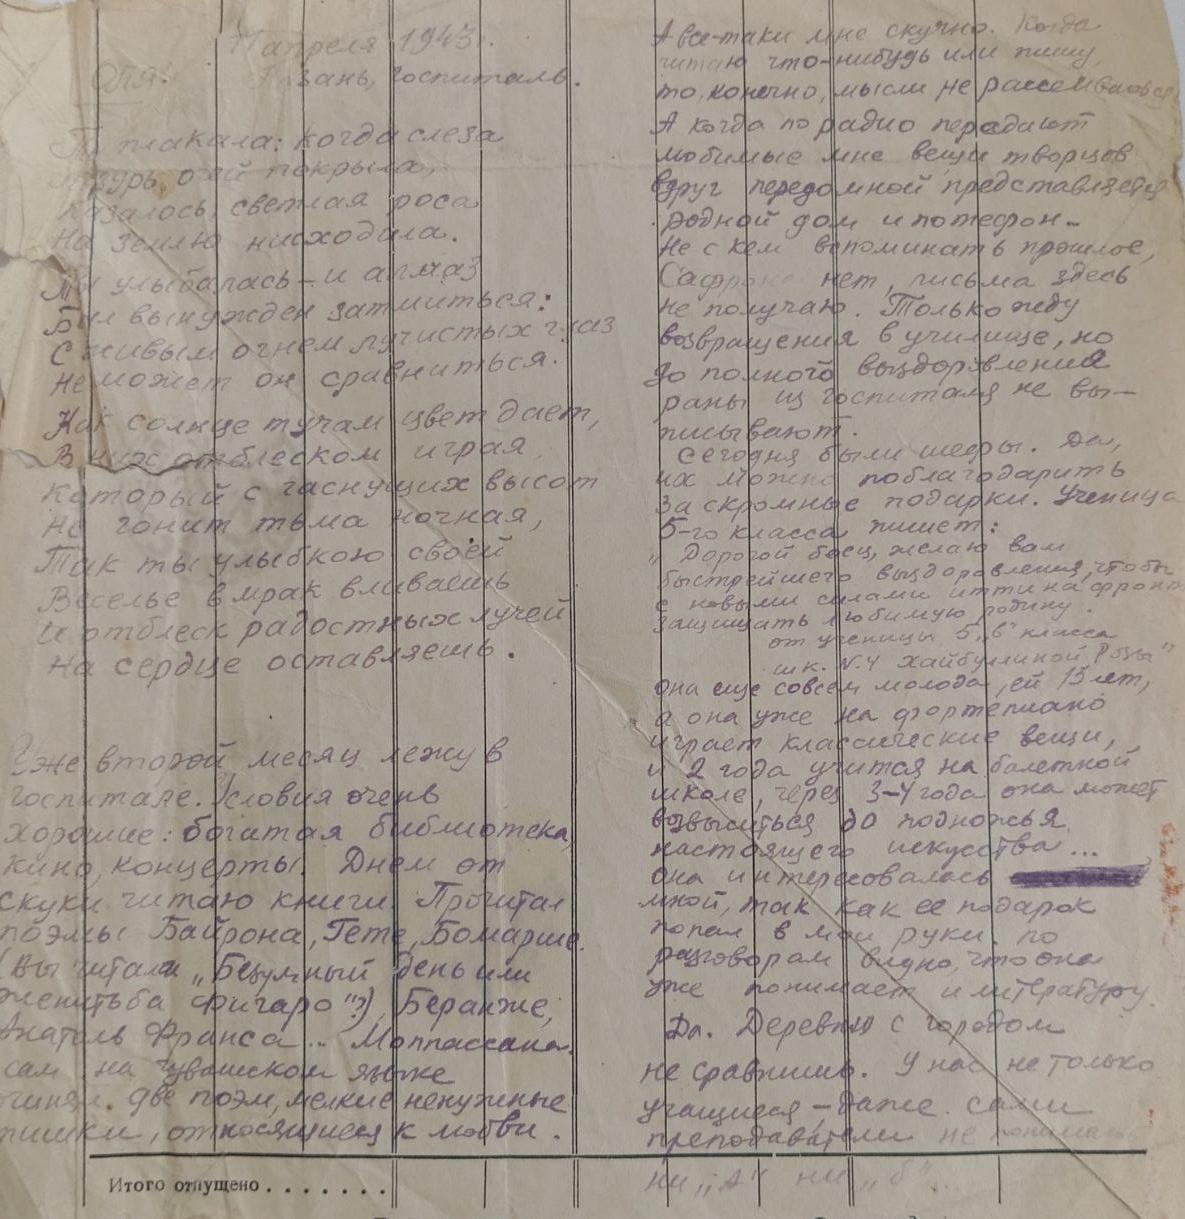 апреля 1943 г.
Оля. Казань, госпиталь.
Ты плакала: когда слеза
лазурь очей покрыла,
Казалось, светлая роса
На землю нисходила.
Ты улыбалась – и алмаз
Был вынужден затмиться:
С живым огнем лучистых глаз
Не может он сравниться.
Как солнце тучам цвет дает,
В них отблеском играя,
который с гаснущих высот
Не гонит тьма ночная,
Так ты улыбкою своей
Веселье в мрак вливаешь
И отблеск радостных лучей
На сердце оставляешь.
Уже второй месяц лежу в
госпитале. Условия очень
хорошие: богатая библиотека,
кино, концерты. Днем от
скуки читаю книги. Прочитал
поэмы Байрона, Гете, Бомарше.
(Вы читали „Безумный день или
женитьба Фигаро"?), Беранже,
Анатоль Франса... Моппассана.
сам на чувашском языке
две поэм, мелкие ненужные
, относящиеся к любви.
А все-таки мне скучно. Когда
читаю что-нибудь или пишу,
то, конечно, мысли не рассеиваются
А когда по радио передают
любимые мне вещи творцов
вдруг передомной представляется
родной дом и потефон...
Не с кем вспоминать прошлое,
нет, письма здесь
не получаю. Только жду
возвращения в училище, но
до полного выздоровления
раны из госпиталя не вы-
писывают.
Сегодня были шефы. Да,
их можно поблагодарить
за скромные подарки. Ученица
5-го класса пишет:
„Дорогой боец, желаю вам
быстрейшего выздоровления, чтобы
с новыми силами итти на фронт
защищать любимую родину.
от ученицы 5 „в" класса
шк. N. 4 Хайбуллиной Розы"
она еще совсем молода, ей 13 лет,
а она уже на фортепиано
играет классические вещи,
и 2 года учится на балетной
школе, через 3-4 года она может
возвыситься до подножья
настоящего искусства...
она интересовалась
мной, так как ее подарок
попал в мои руки. по
разговорам видно, что она
уже понимает и литературу.
Да. Деревню с городом
не сравнишь. У нас не только
учащиеся – даже сами
преподаватели не понимают
ни „А" ни „б"...
Итого отпущено . . . . . . .